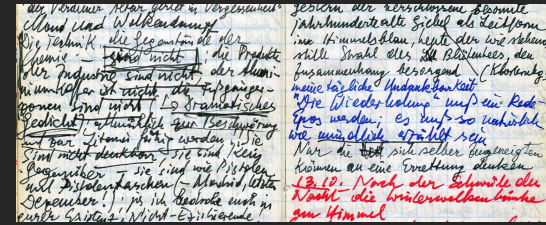 der Veroneser Altar gerät in Vergessenheit
Mond und Wolkendampf
Die Technik, die Gegenstände der
Chemie – sind nicht, die Produkte
der Industrie sind nicht, der
ist nicht die
sind nicht (→ Dramatisches
Gedicht: allmählich zur Beschwörung
und zur Litanei werden: "Sie
sind nicht denkbar – sie sind kein
Gegenüber – sie sind wie Pistolen
und Pistolentaschen (– Madrid, letzten
Dezember:) ja ich bedrohe euch in
eurer Existenz, Nicht-Existierende!
gestern der zerschossene besonnte
jahrhundertealte Giebel als Leitform
ins Himmelsblau, heute der wie
stille Strahl des Blütentees, den
Zusammenhang besorgend
meine tägliche Undankbarkeit
"Die Wiederholung" muß ein Rede-
Epos werden; es muß so natürlich
wie mündlich erzählt sein
Nur die sich selber
können an eine Errettung denken
13.10. Nach der Schwüle der
Nacht die winterwolkenbänke
am Himmel